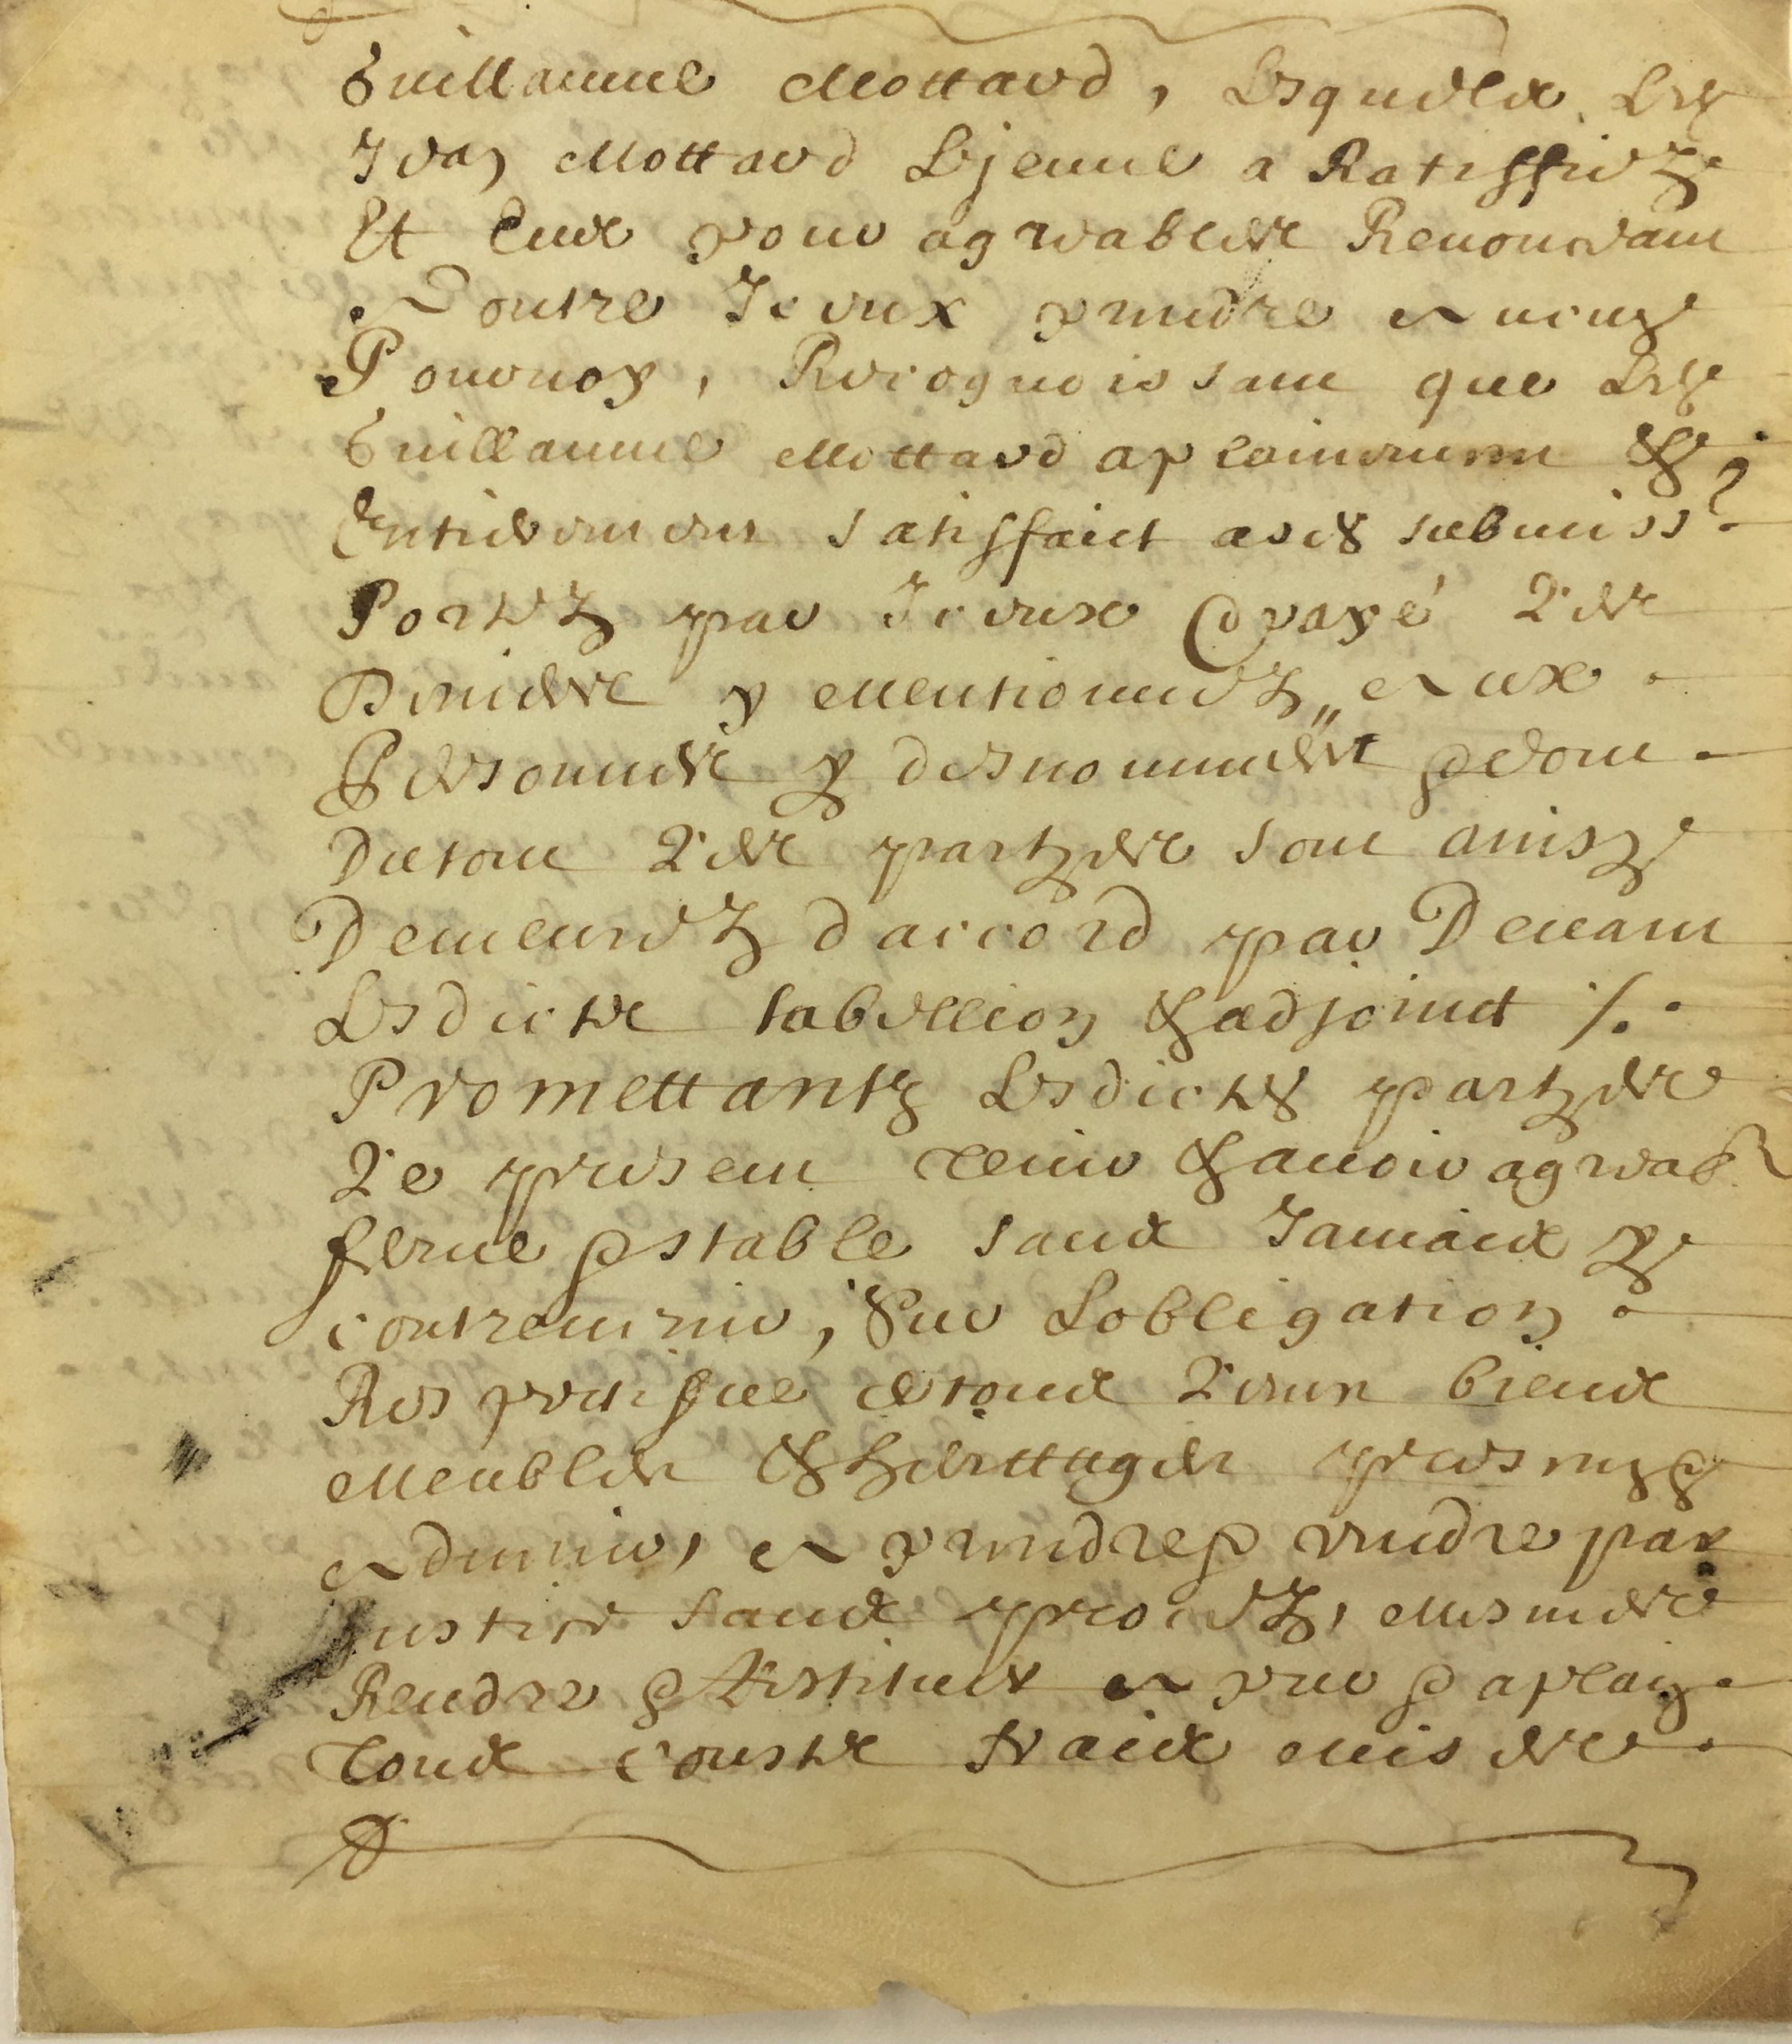 Guillaume Mottard, Lesquelx led
Jean Mottard Le jeune a Ratiffiez
Et Eux pour agreables Renonceant
Contre Iceux prendre en venz
Pourvoy, Recognoissant que led
Guillaume Mottard a plainement &
Entierement satisffaict a ses submiss
Portez par Iceux Et payé Les
Deniers y Mentionnez,, aux
Personnes y desnommees et dont
Du tout Les partyes sont ainsy
Demeurez daccord par Devant
Lesdicts tabellion & adjoinct ·/.·
Promettantz Lesdictes partyes
Le present tenir & avoir agreab
ferme et stable sans Jamais y
contrevenir, Sur Lobligation
Respectifue de tous Leurs biens
Meubles & hérittages presentz et
advenir, a prendre et vendre par
Justice sans procez, Mesmes
Rendre et Restituer a pur et a plain
Tous cousts fraix mises